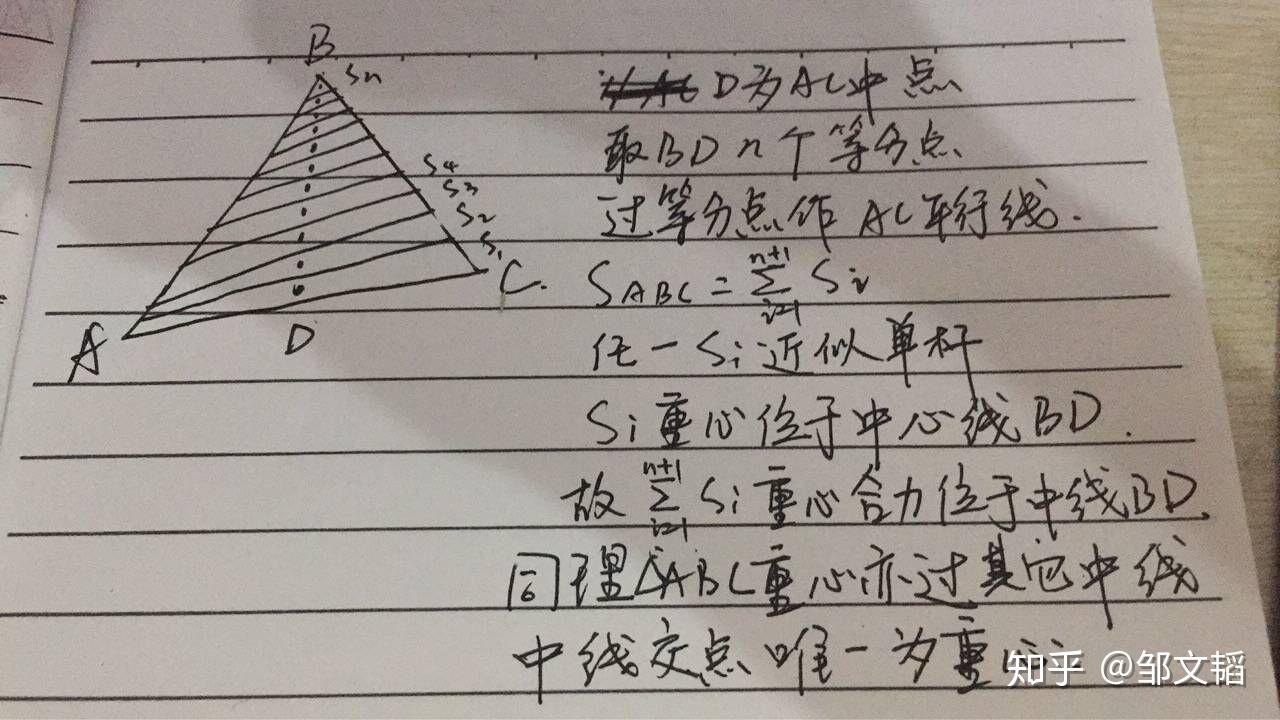 B
Sn
S4
S3
S2
S1
C.
A
D
D为AC中点
取BD n个等分点
过等分点作AC平行线.
SABC = ∑ Si
n+1
i=1
任一Si近似单杆
Si重心位于中心线BD.
故 ∑ Si重心合力位于中线BD.
n+1
i=1
同理△ABC重心亦过其它中线
中线交点唯一为重心
知乎 @邹文韬